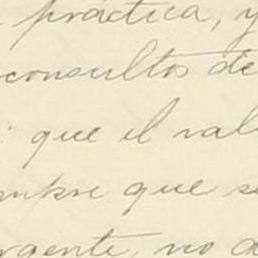 práctica, y
consultos de
: que el val
mpre que se
rgente, no d